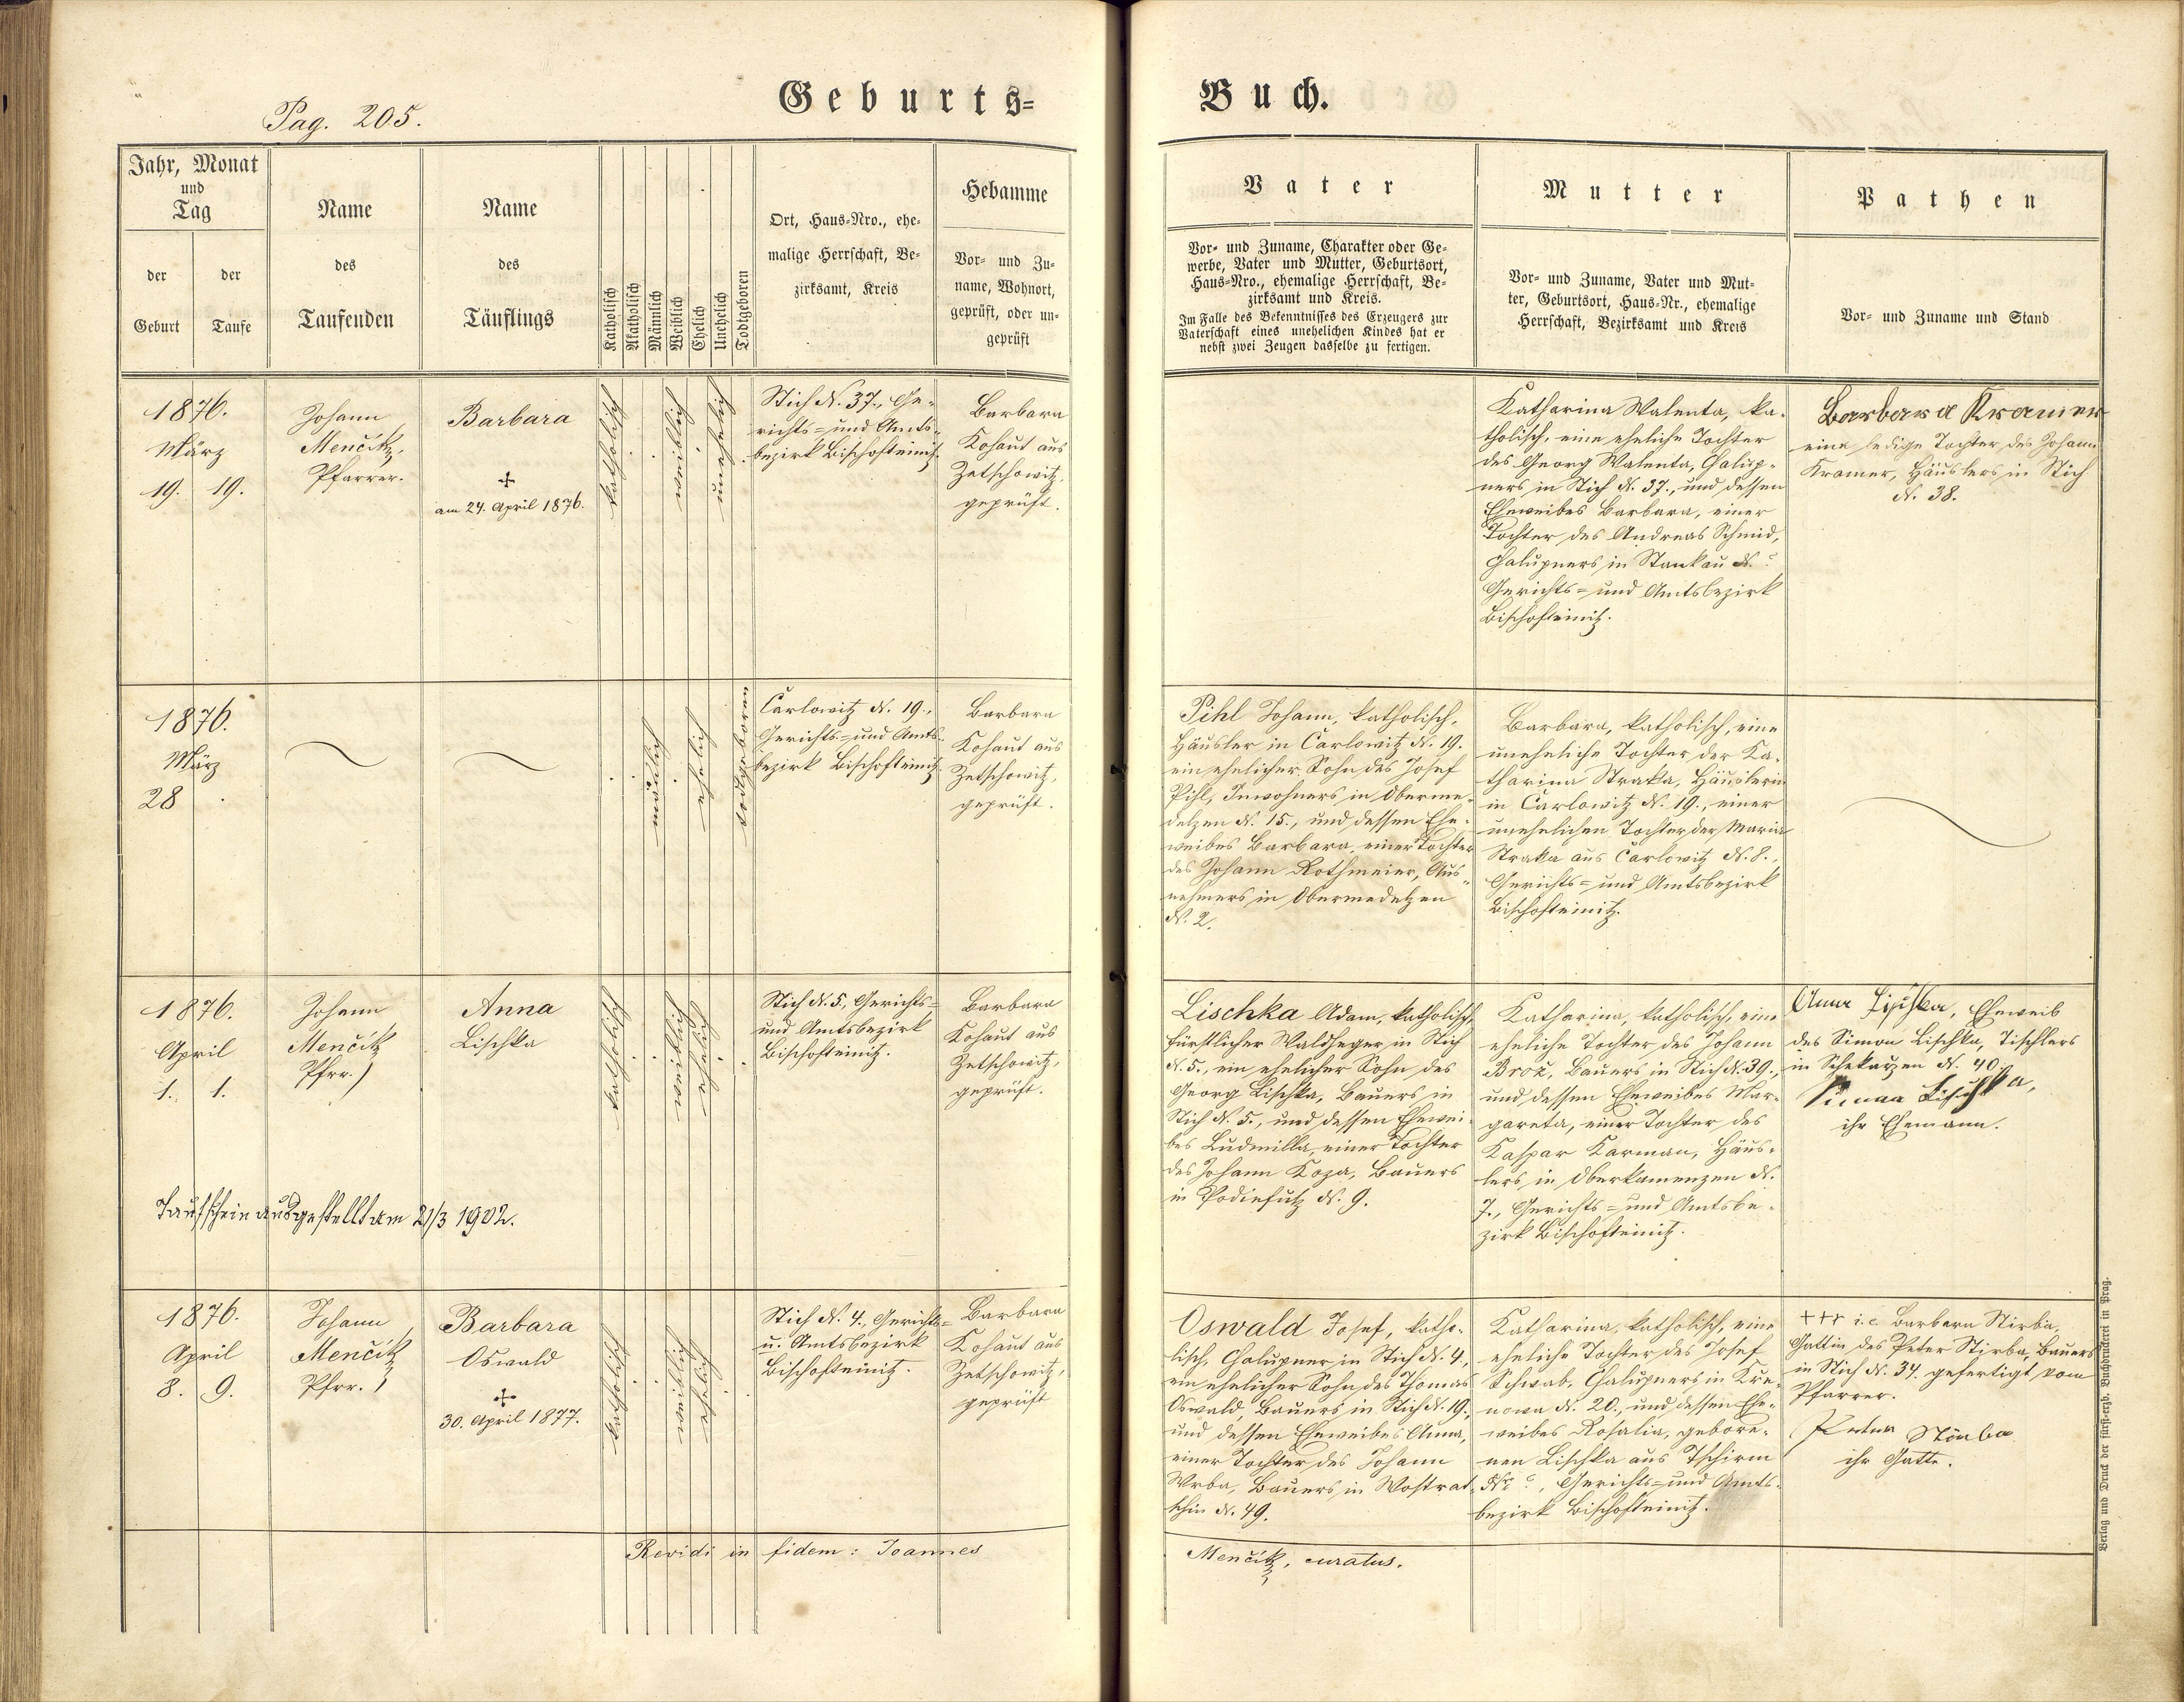 Pag. 205.
Geburts=
Buch.
Jahr, Monat
und
Tag
der
Geburt
der
Taufe
Name
des
Taufenden
Name
des
Täuflings
Katholisch
Akatholisch
Männlich
Weiblich
Ehelich
Unehelich
Todtgeboren
Ort, Haus-Nro., ehe-
malige Herrschaft, Be-
zirksamt, Kreis
Hebamme
Vor- und Zu-
name, Wohnort,
geprüft, oder un-
geprüft
Vater
Vor- und Zuname, Charakter oder Ge-
werbe, Vater und Mutter, Geburtsort,
Haus-Nro., ehemalige Herrschaft, Be-
zirksamt und Kreis.
Im Falle des Bekenntnisses des Erzeugers zur
Vaterschaft eines unehelichen Kindes hat er
nebst zwei Zeugen dasselbe zu fertigen.
Mutter
Vor- und Zuname, Vater und Mut-
ter, Geburtsort, Haus-Nr., ehemalige
Herrschaft, Bezirksamt und Kreis
Pathen
Vor- und Zuname und Stand
1876.
März
19. 19.
Johann
Menčik,
Pfarrer.
Barbara
+
am 24. April 1876.
katholisch
weiblich
unehelich
Stich N. 37., Ge-
richts= und Amts-
bezirk Bischofteinitz.
Barbara
Kohaut aus
Zetschowitz,
geprüft.
Katharina Walenta, ka-
tholisch, eine eheliche Tochter
des Georg Walenta, Chalup-
ners in Stich N. 37., und dessen
Eheweibes Barbara, einer
Tochter des Andreas Schmid,
Chalupners in Stankau N. ?
Gerichts= und Amtsbezirk
Bischofteinitz.
Barbara Kramer
eine ledige Tochter des Johann
Kramer, Häuslers in Stich
N. 38.
1876.
März
28
männlich
ehelich
todtgeboren
Carlowitz N. 19.,
Gerichts= und Amts-
bezirk Bischofteinitz.
Barbara
Kohaut aus
Zetschowitz,
geprüft.
Pihl Johann, katholisch,
Häusler in Carlowitz N. 19.
ein ehelicher Sohn des Josef
Pihl, Inwohners in Oberme-
delzen N. 15., und dessen Ehe-
weibes Barbara, einer Tochter
des Johann Rothmeier, Aus-
nehmers in Obermedelzen
N. 2.
Barbara, katholisch, eine
uneheliche Tochter der Ka-
tharina Straka, Häuslerin
in Carlowitz N. 19., einer
unehelichen Tochter der Maria
Straka aus Carlowitz N. 8.,
Gerichts= und Amtsbezirk
Bischofteinitz.
1876.
April
1. 1.
Johann
Menčik
Pfrr.
Anna
Lischka
katholisch
weiblich
ehelich
Stich N. 5., Gerichts=
und Amtsbezirk
Bischofteinitz.
Barbara
Kohaut aus
Zetschowitz,
geprüft.
Lischka Adam, katholisch,
fürstlicher Waldheger in Stich
N. 5., ein ehelicher Sohn des
Georg Lischka, Bauers in
Stich N. 5., und dessen Ehewei-
bes Ludmilla, einer Tochter
des Johann Koza, Bauers
in Podiefutz N. 9.
Katharina, katholisch, eine
eheliche Tochter des Johann
Brož, Bauers in Stich N. 39.,
und dessen Eheweibes Mar-
gareta, einer Tochter des
Kaspar Karman, Häus-
lers in Oberkamenzen N.
7., Gerichts= und Amtsbe-
zirk Bischofteinitz.
Anna Lischka, Eheweib
des Simon Lischka, Tischlers
in Schekarzen N. 40.
Simon Lischka,
ihr Ehemann.
Taufschein ausgestellt am 21/3 1902.
1876.
April
8. 9.
Johann
Menčik
Pfrr.
Barbara
Oswald
+
30. April 1877.
katholisch
weiblich
ehelich
Stich N. 4., Gerichts=
u. Amtsbezirk
Bischofteinitz.
Barbara
Kohaut aus
Zetschowitz,
geprüft
Oswald Josef, katho-
lisch, Chalupner in Stich N. 4.,
ein ehelicher Sohn des Thomas
Oswald, Bauers in Stich N. 19.,
und dessen Eheweibes Anna,
einer Tochter des Johann
Wrba, Bauers in Wostrat-
schin N. 49.
Katharina, katholisch, eine
eheliche Tochter des Josef
Schwab, Chalupners in Kre-
nowa N. 20., und dessen Ehe-
weibes Rosalia, gebore-
nen Lischka aus Tschirm
Nr. ?, Gerichts= und Amts-
bezirk Bischofteinitz.
+++ i.e. Barbara Stirba,
Gattin des Peter Stirba, Bauers
in Stich N. 34. gefertigt vom
Pfarrer.
Peter Stirba
ihr Gatte.
Revidi in fidem: Joannes
Menčik, curatus.
Verlag und Druck der fürst-erzb. Buchdruckerei in Prag.